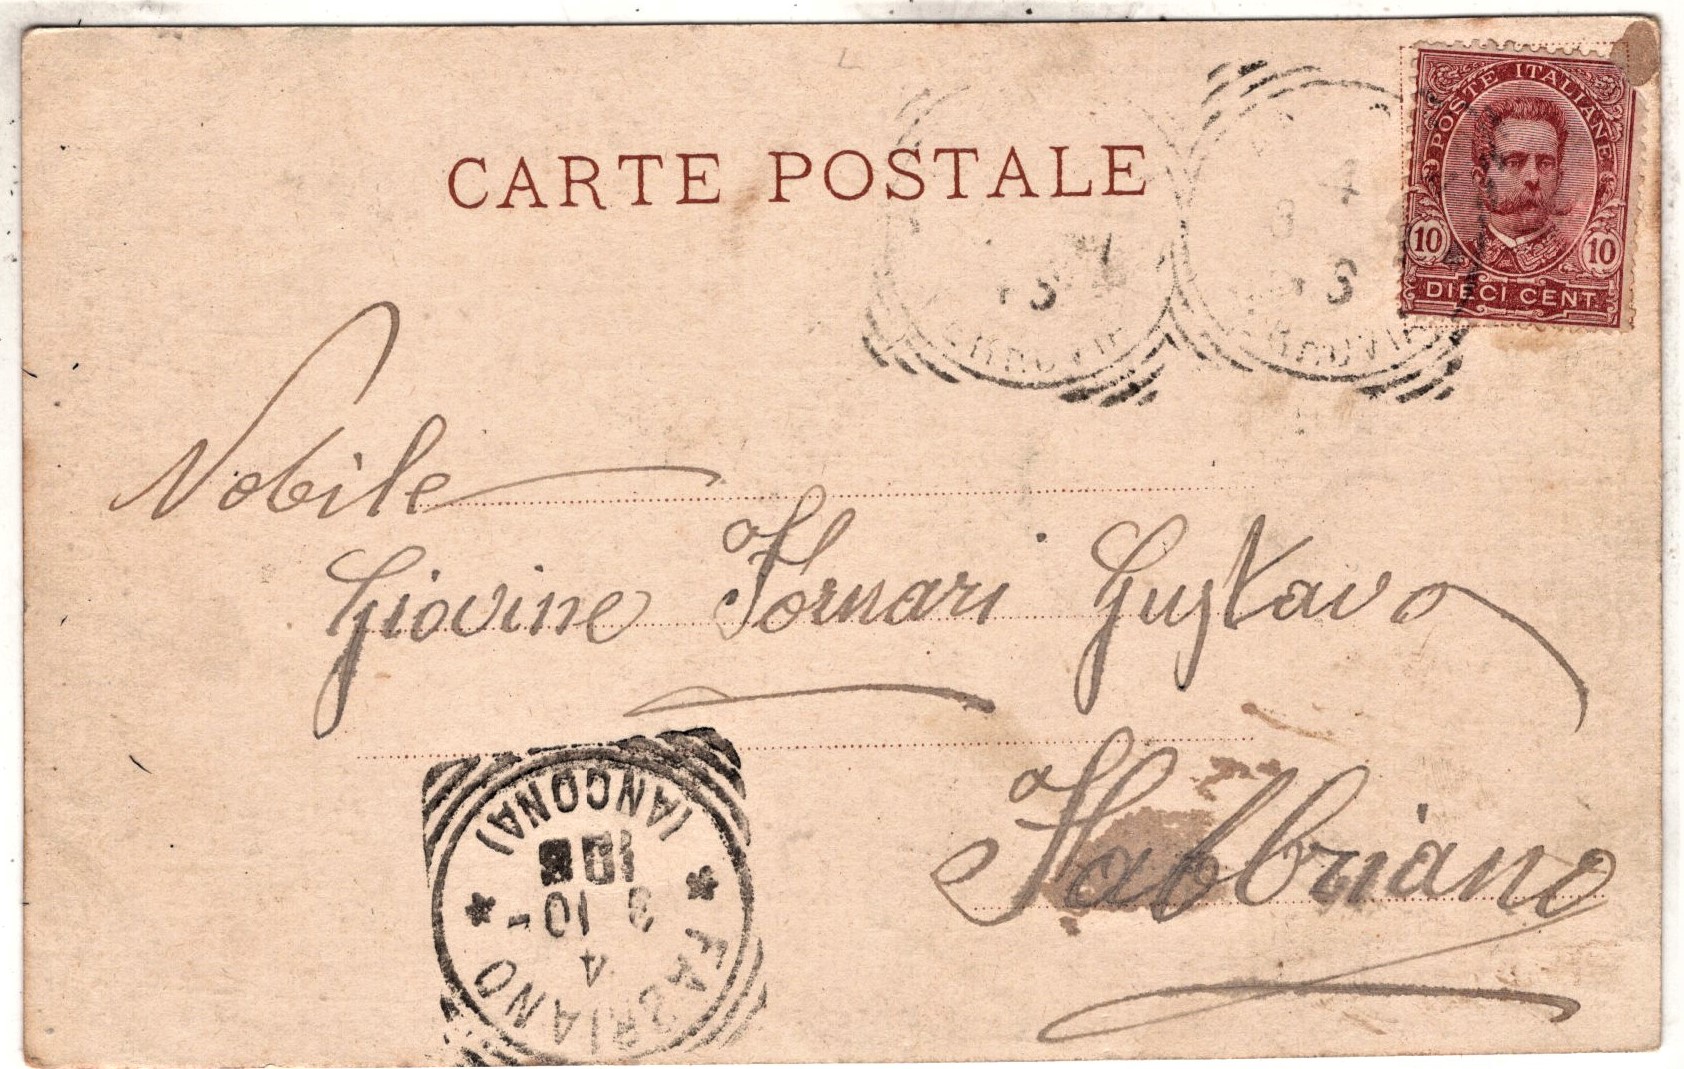 CARTE POSTALE
POSTE ITALIANE
10 10
DIECI CENT.
4
8
3
3
Nobile
Giovine Fornari Gustavo
Fabbriano
FABRIANO
(ANCONA)
4
10